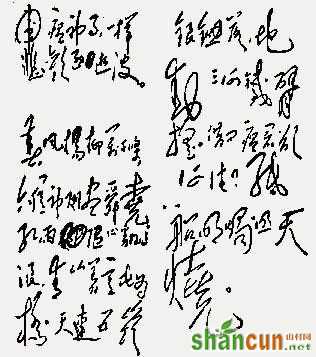 问瘟神事,一样
悲歡逐逝波。
春风杨柳万千條
六亿神州尽舜堯
红雨随心翻作
浪,青山着意化为
桥 天连五岭
银鋤落,地
动三河铁臂
摇。借问瘟君欲
何往?纸
船明燭照天
烧。
shancun 山村网
.net